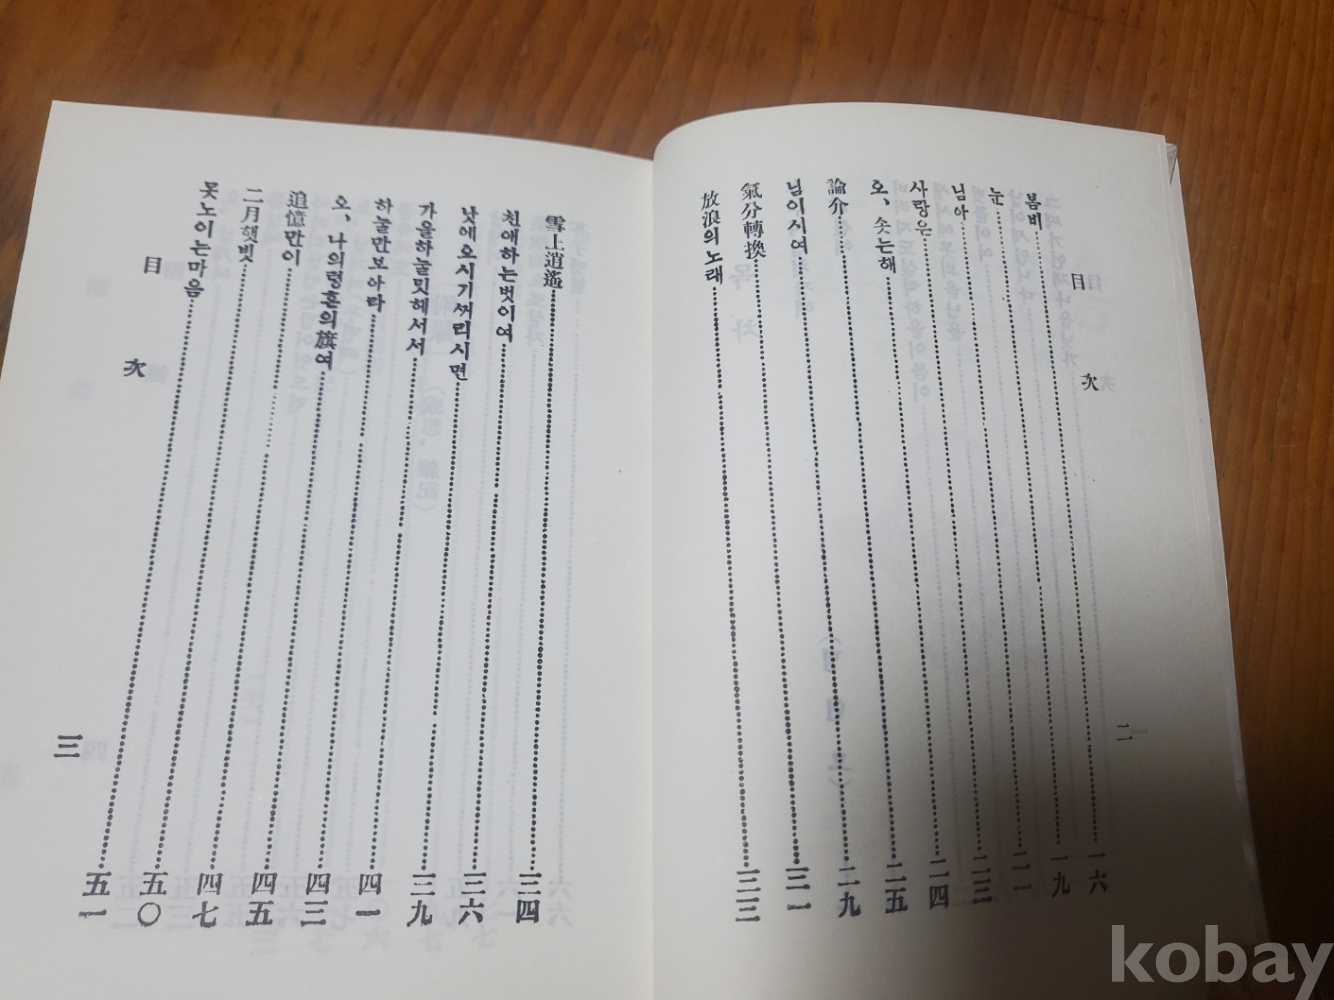 目次
二
봄비………一六
눈………一九
님아………二一
사랑은………二三
오、솟는해………二四
論介………二五
님이시여………二九
氣分轉換………三一
放浪의노래………三三
雪上逍遙………三四
친애하는벗이여………三六
낫에오시기ᄭᅥ리시면………三九
가을하눌밋헤서서………四一
하눌만보아라………四三
오、나의령혼의旗여………四五
追憶만이………四七
二月햇빗………五〇
못노이는마음………五一
目次
三
kobay